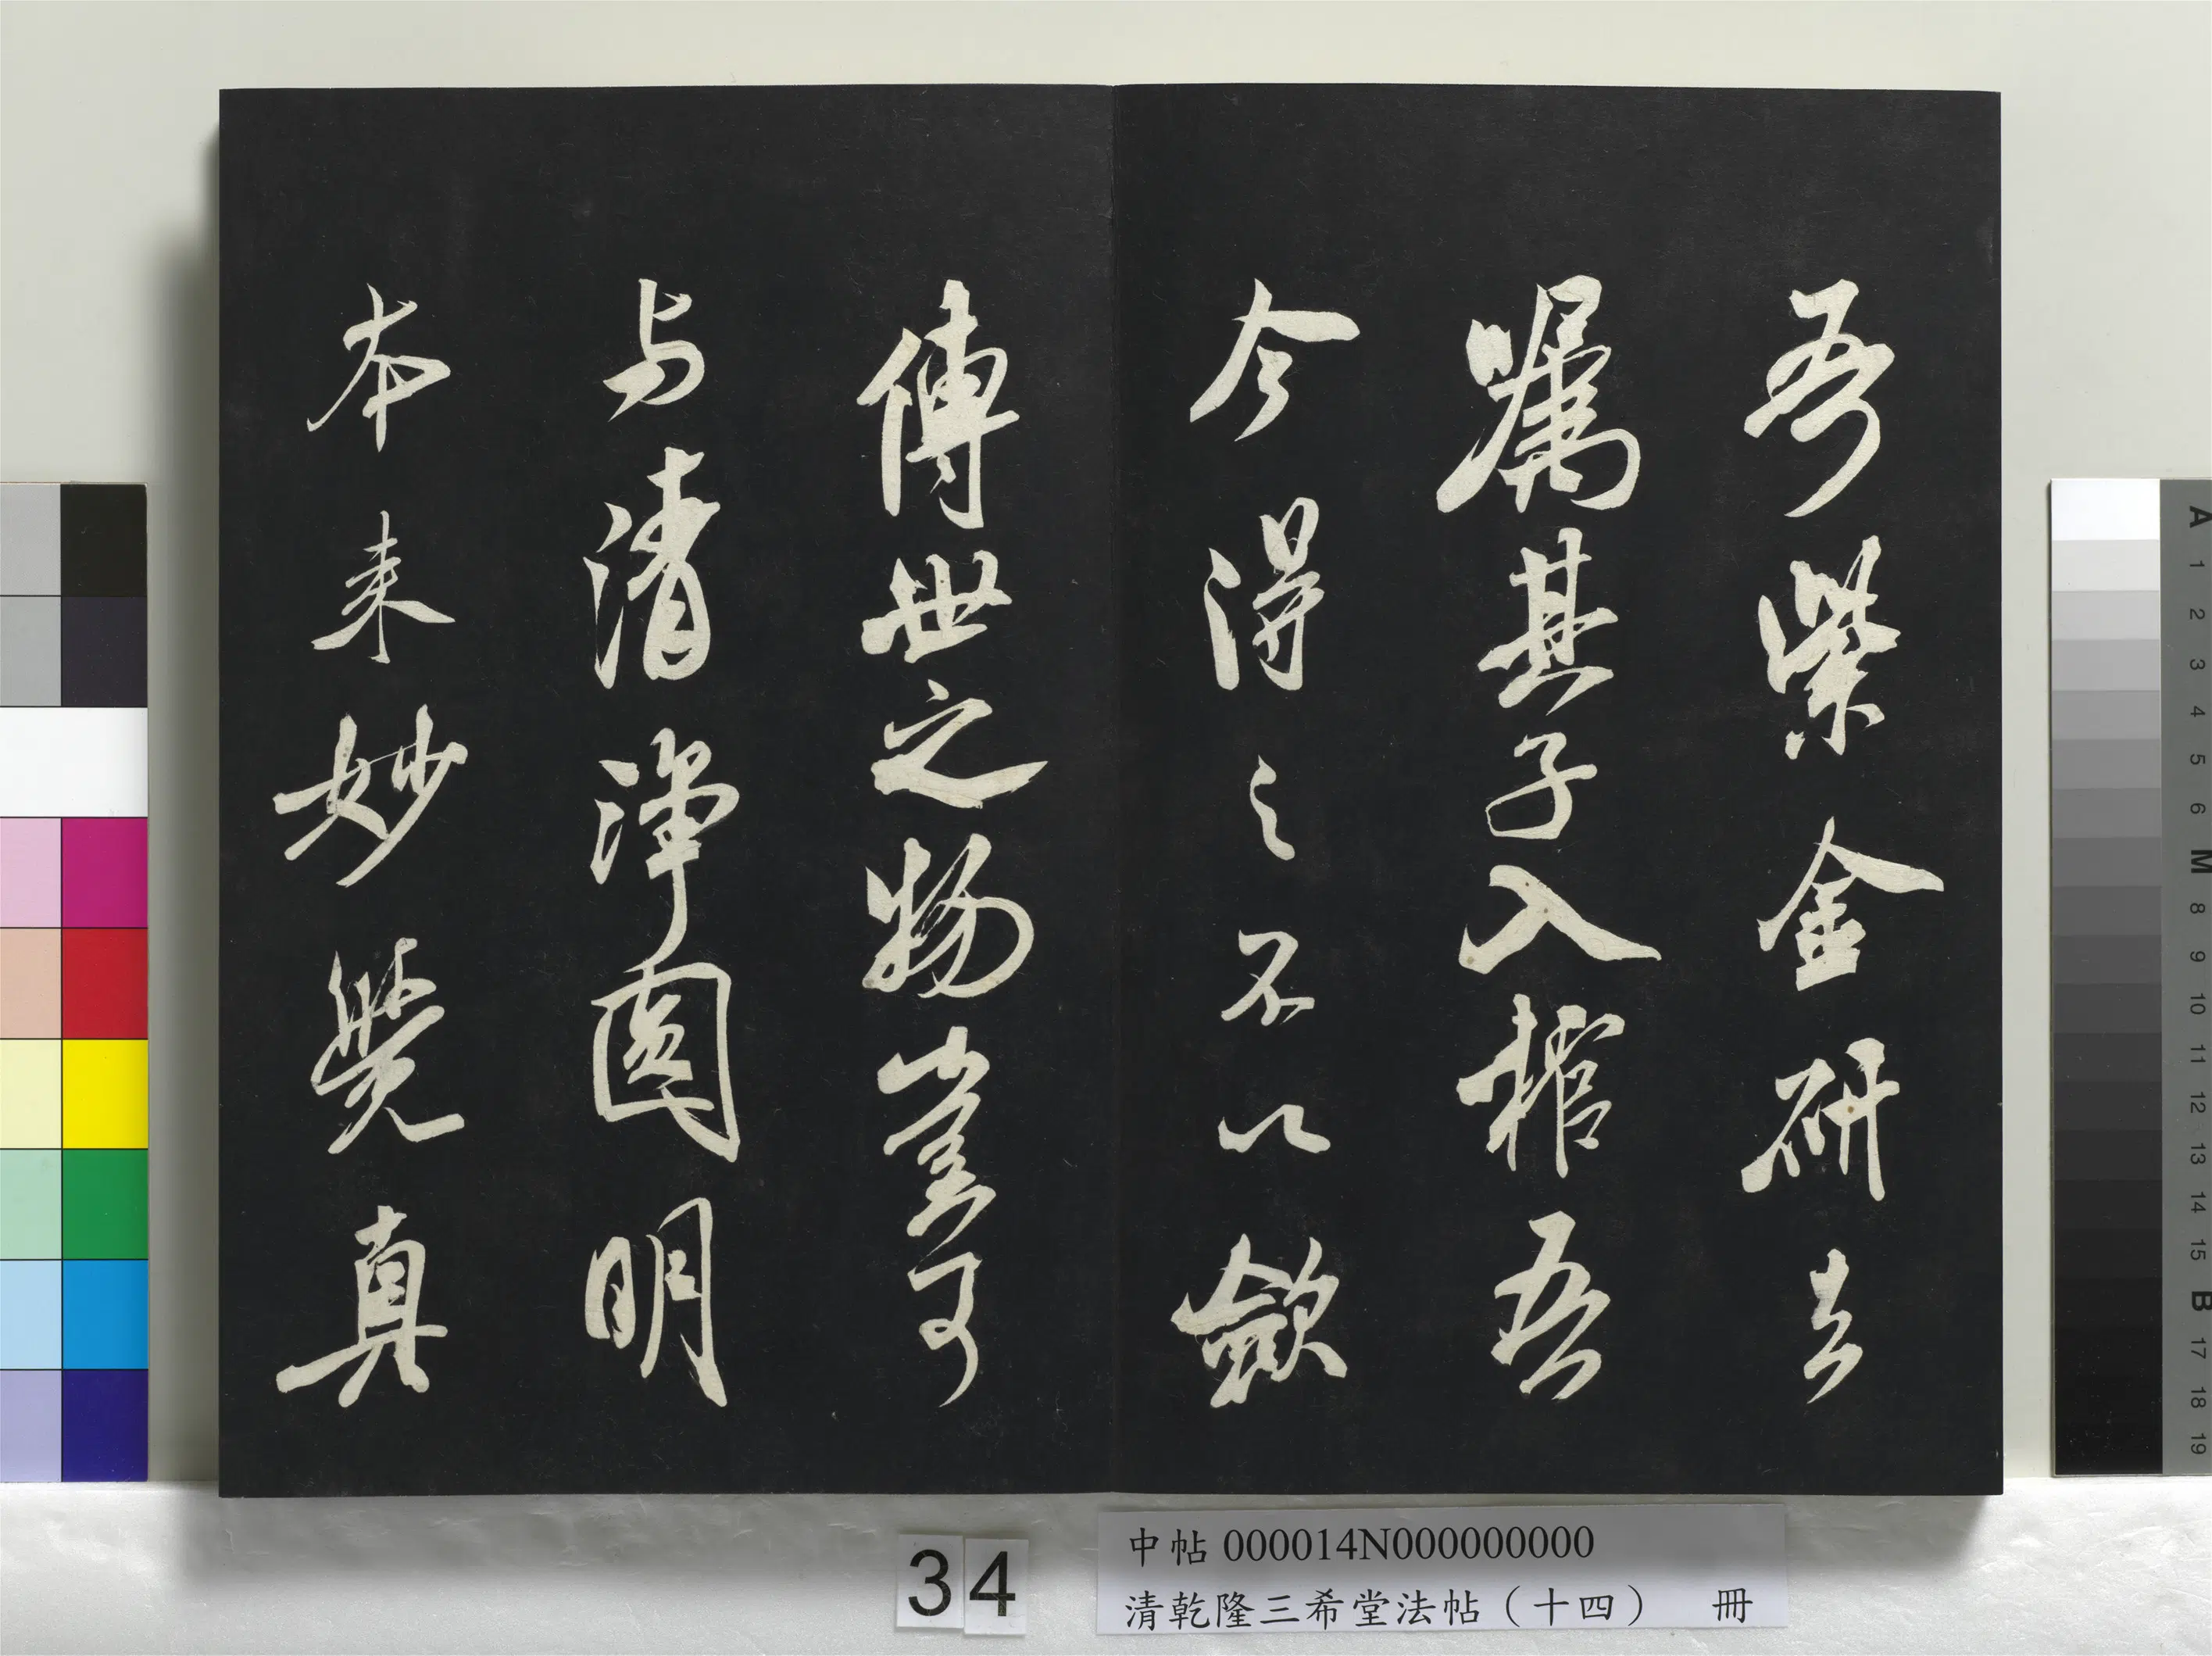 吾紫金研去
嘱其子入棺吾
今得之不以歛
傳世之物豈可
与清淨圓明
本来妙覺真
34
中帖 000014N000000000
清乾隆三希堂法帖（十四） 冊
A
1
2
3
4
5
6
M
8
9
10
11
12
13
14
15
B
17
18
19